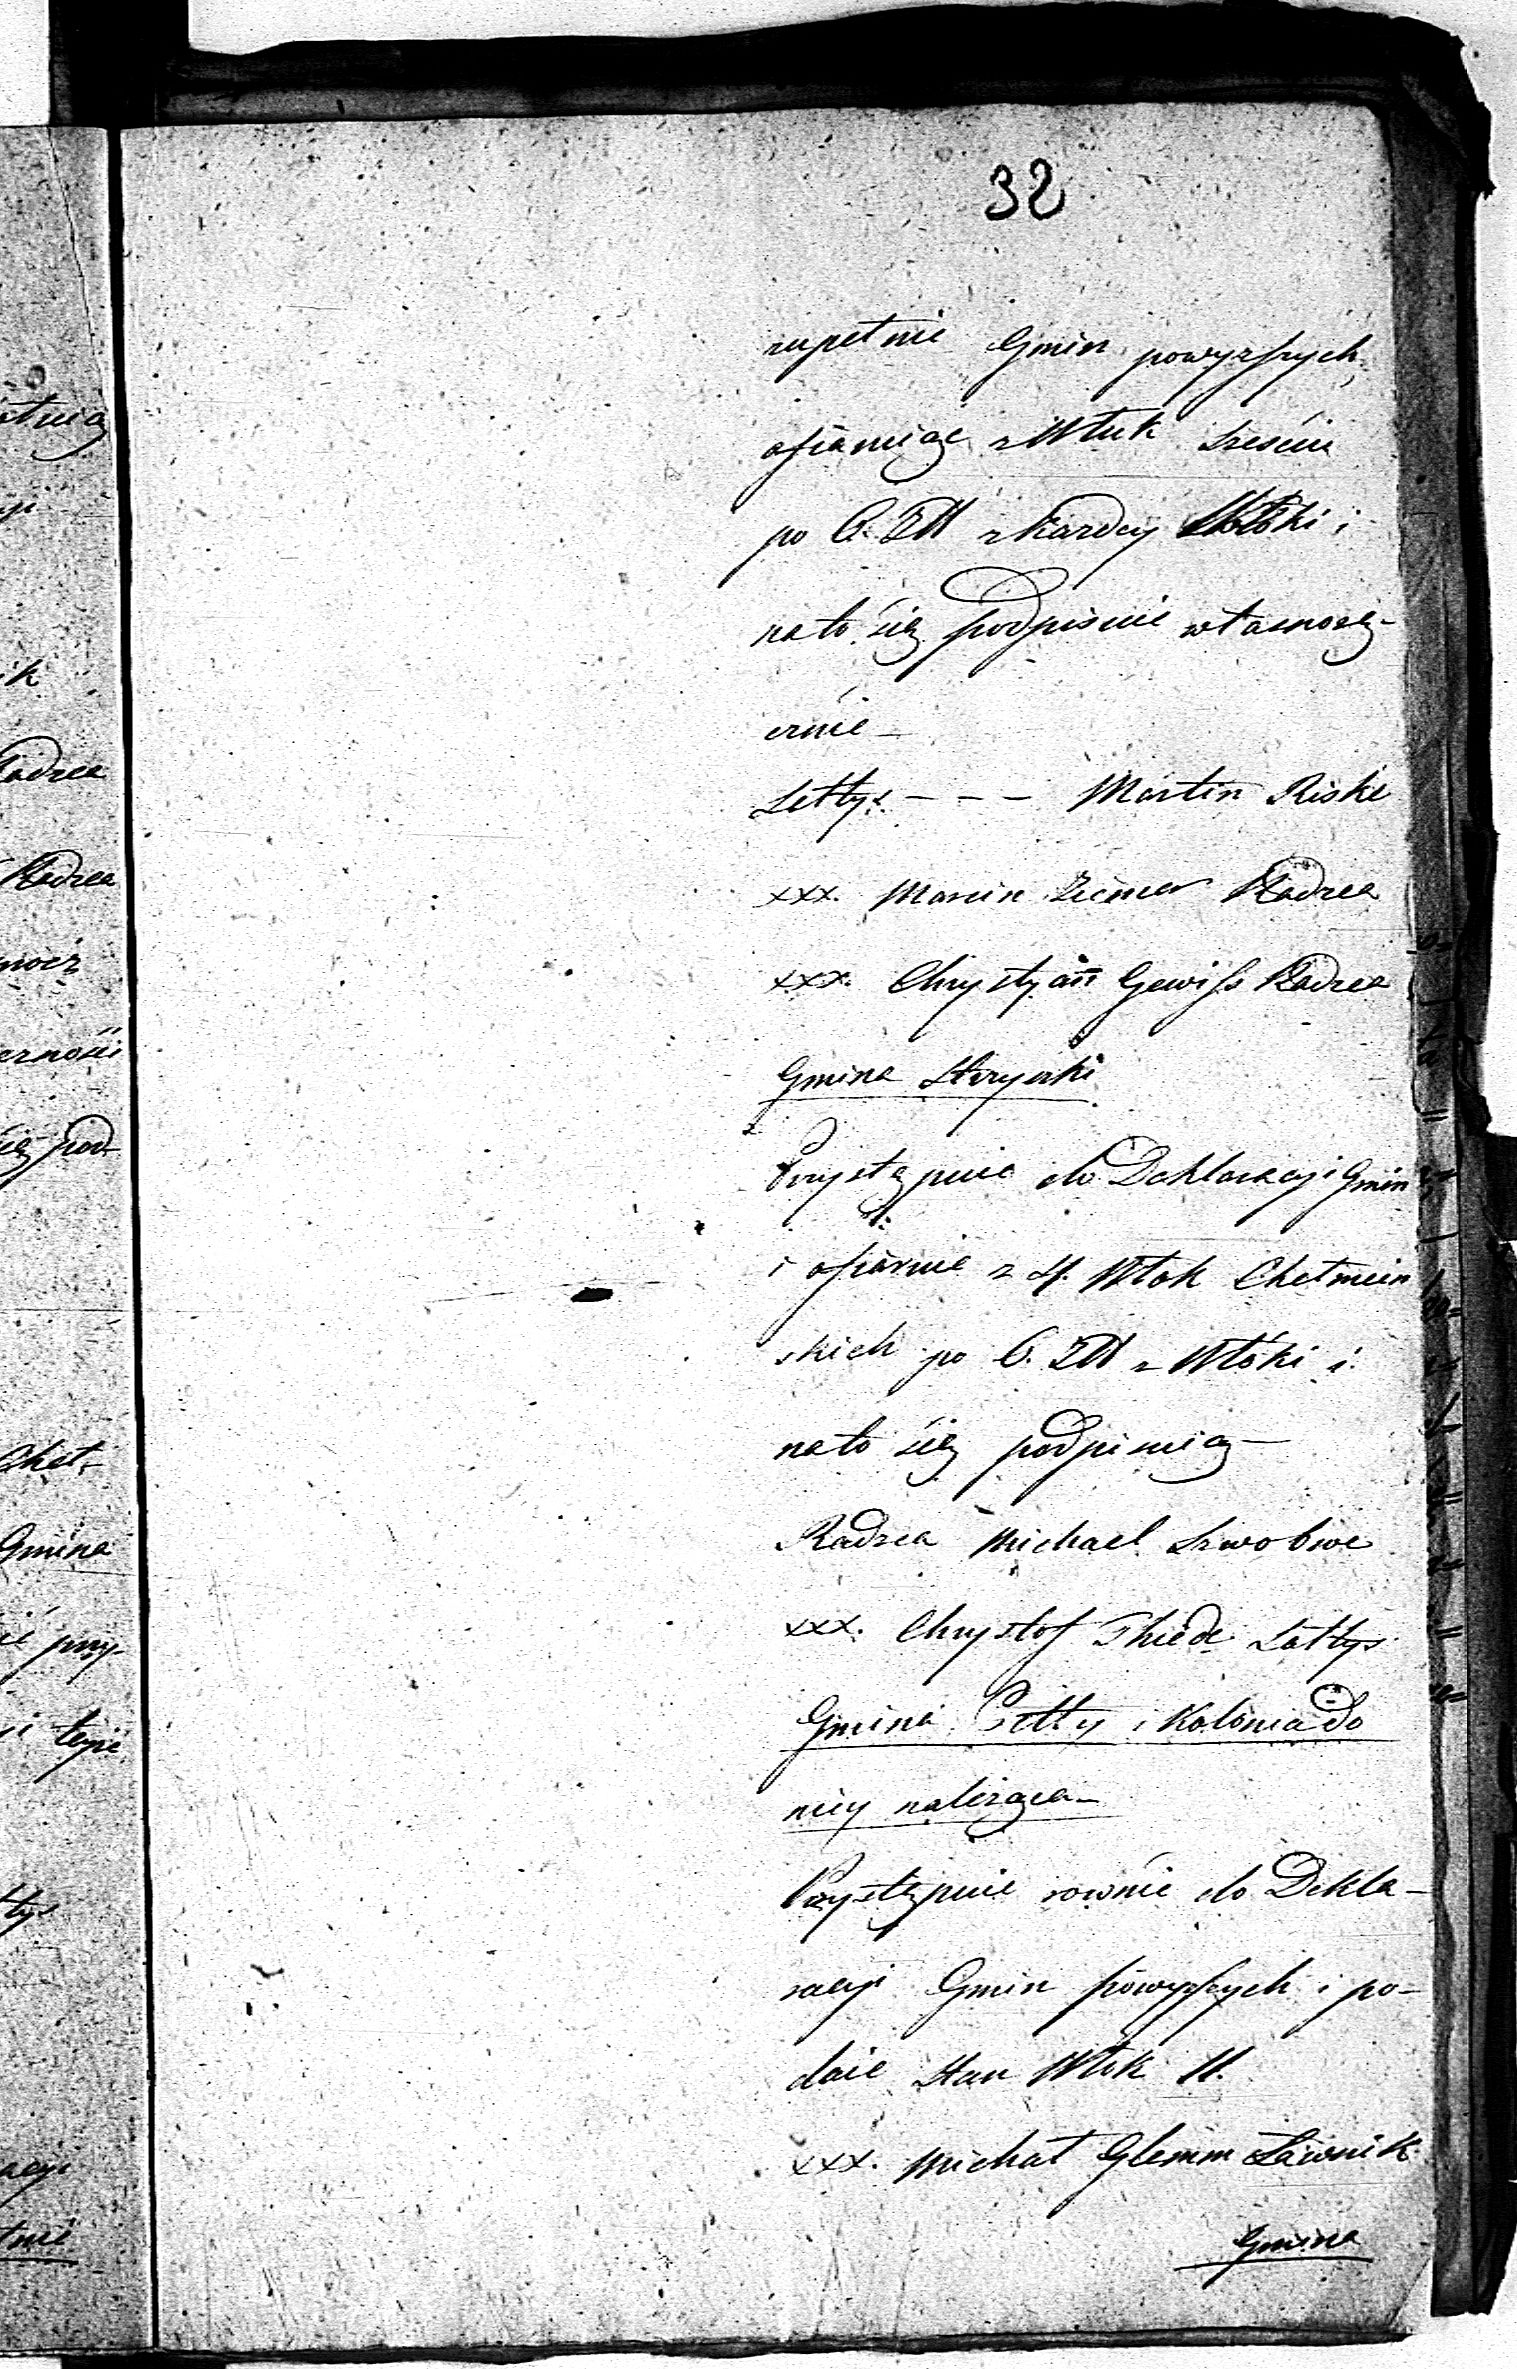 32
zupełnie Gmin powyzszych,
ofiarujge z Włuk szesciu
po 6. Zł z Kazdey Włoki i
nato się podpisuie własnorę-
cznie –
Sołtys. – – – Martin Riske
xxx. Marcin Ziemer Radzca
xxx. Chrystyan Gewiss Radzca
Gmina Stryczki
Przystępuie do Deklaracyi Gmin
i ofiaruie z 4. Włok Chełmin
skich po 6. Zł z Włóki i
nato się podpisuią –
Radzca Michael Szwobwe
xxx. Chrystof Thiede Sołtys
Gmina i Kolonia do
niey należąca –
Przystępuie rownie do Dekla-
racyi Gmin powyzszych i po-
daie Stan Włok 11.
xxx. Michał Glemm Ławnik
Gmina
Radzca
Radzca
czności
się pod-
Cheł-
Gmina
przy-